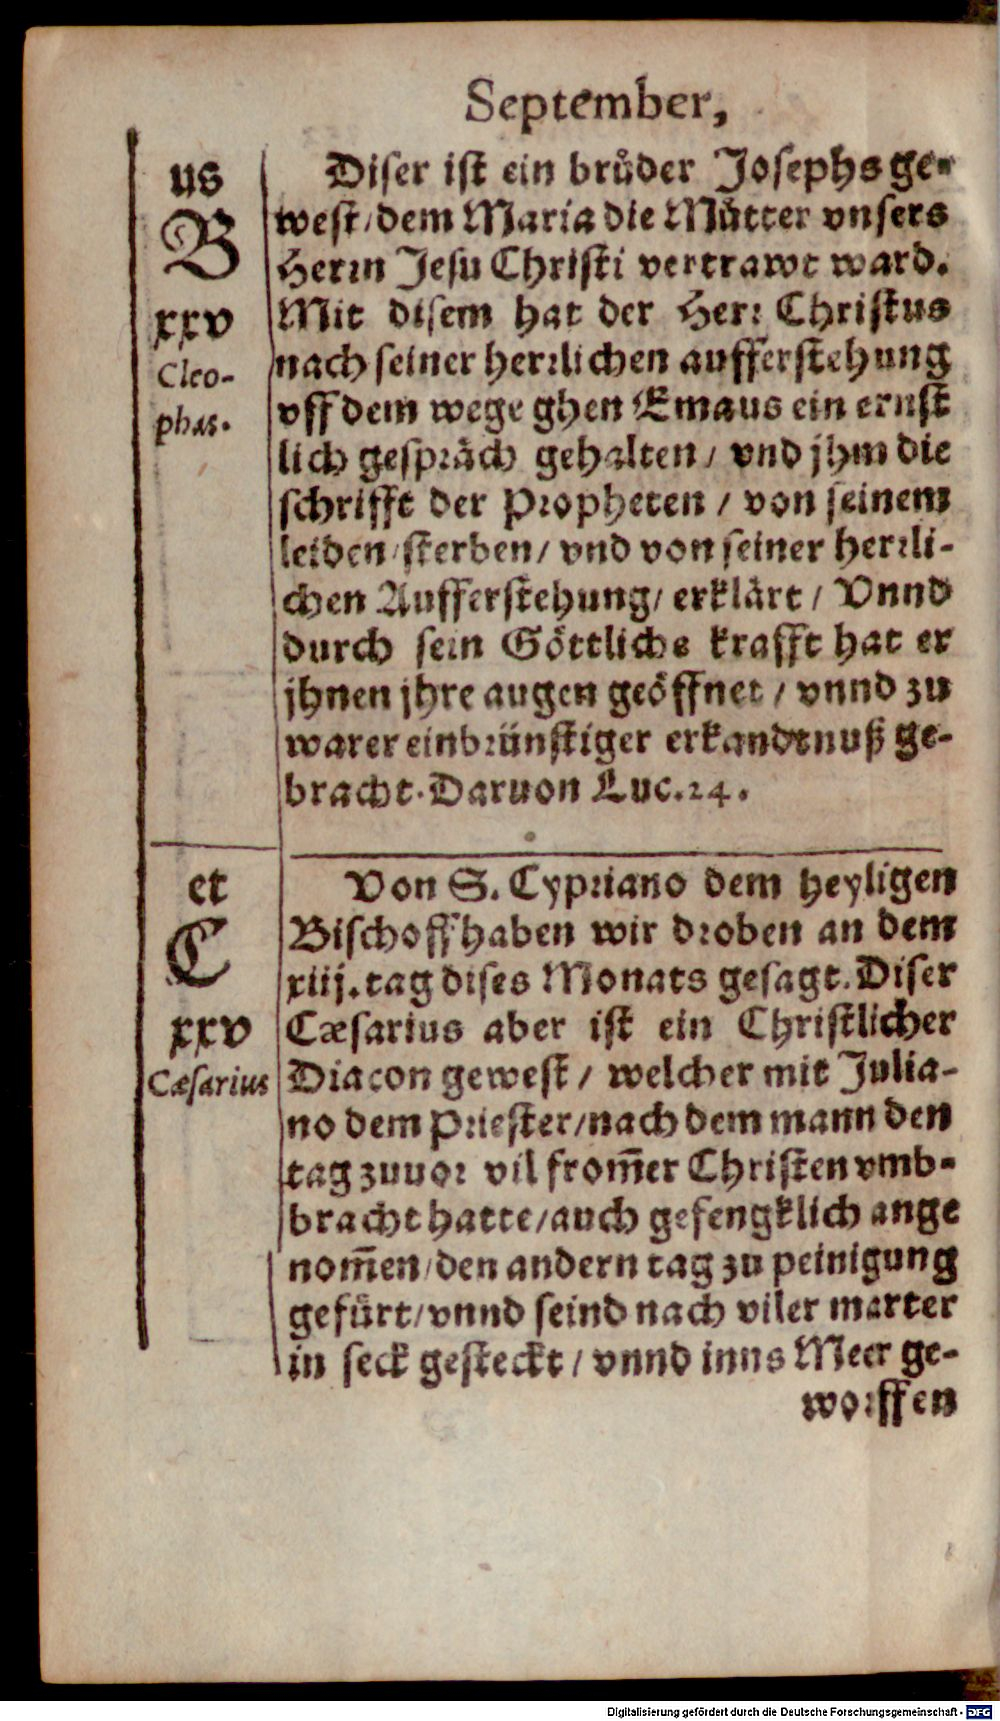 September,
us
B
xxv
Cleo-
phas.
Diser ist ein brůder Josephs ge-
west/dem Maria die Můtter vnsers
Herrn Jesu Christi vertrawt ward.
Mit disem hat der Herr Christus
nach seiner herrlichen aufferstehung
vff dem wege ghen Emaus ein ernst
lich gespräch gehalten / vnd jhm die
schrifft der Propheten / von seinem
leiden/sterben/ vnd von seiner herrli-
chen Aufferstehung/ erklärt / Vnnd
durch sein Göttliche krafft hat er
jhnen jhre augen geöffnet / vnnd zu
warer einbrünstiger erkandtnuß ge-
bracht. Daruon Luc.24.
et
C
xxv
Cæsarius
Von S. Cypriano dem heyligen
Bischoff haben wir droben an dem
xiij. tag dises Monats gesagt. Diser
Cæsarius aber ist ein Christlicher
Diacon gewest / welcher mit Julia-
no dem Priester/nach dem mann den
tag zuuor vil from̄er Christen vmb-
bracht hatte/auch gefengklich ange
nom̄en/den andern tag zu peinigung
gefürt/vnnd seind nach viler marter
in seck gesteckt / vnnd inns Meer ge-
worffen
Digitalisierung gefördert durch die Deutsche Forschungsgemeinschaft - DFG